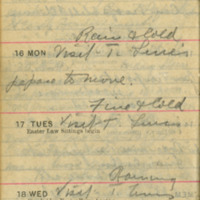 Rain & Cold
16 MON Visit T. Line's
prepare to move.
Fine & Cold
17 TUES Visit T.
Easter Law Sittings begin
Raining
18 WED Visit T.